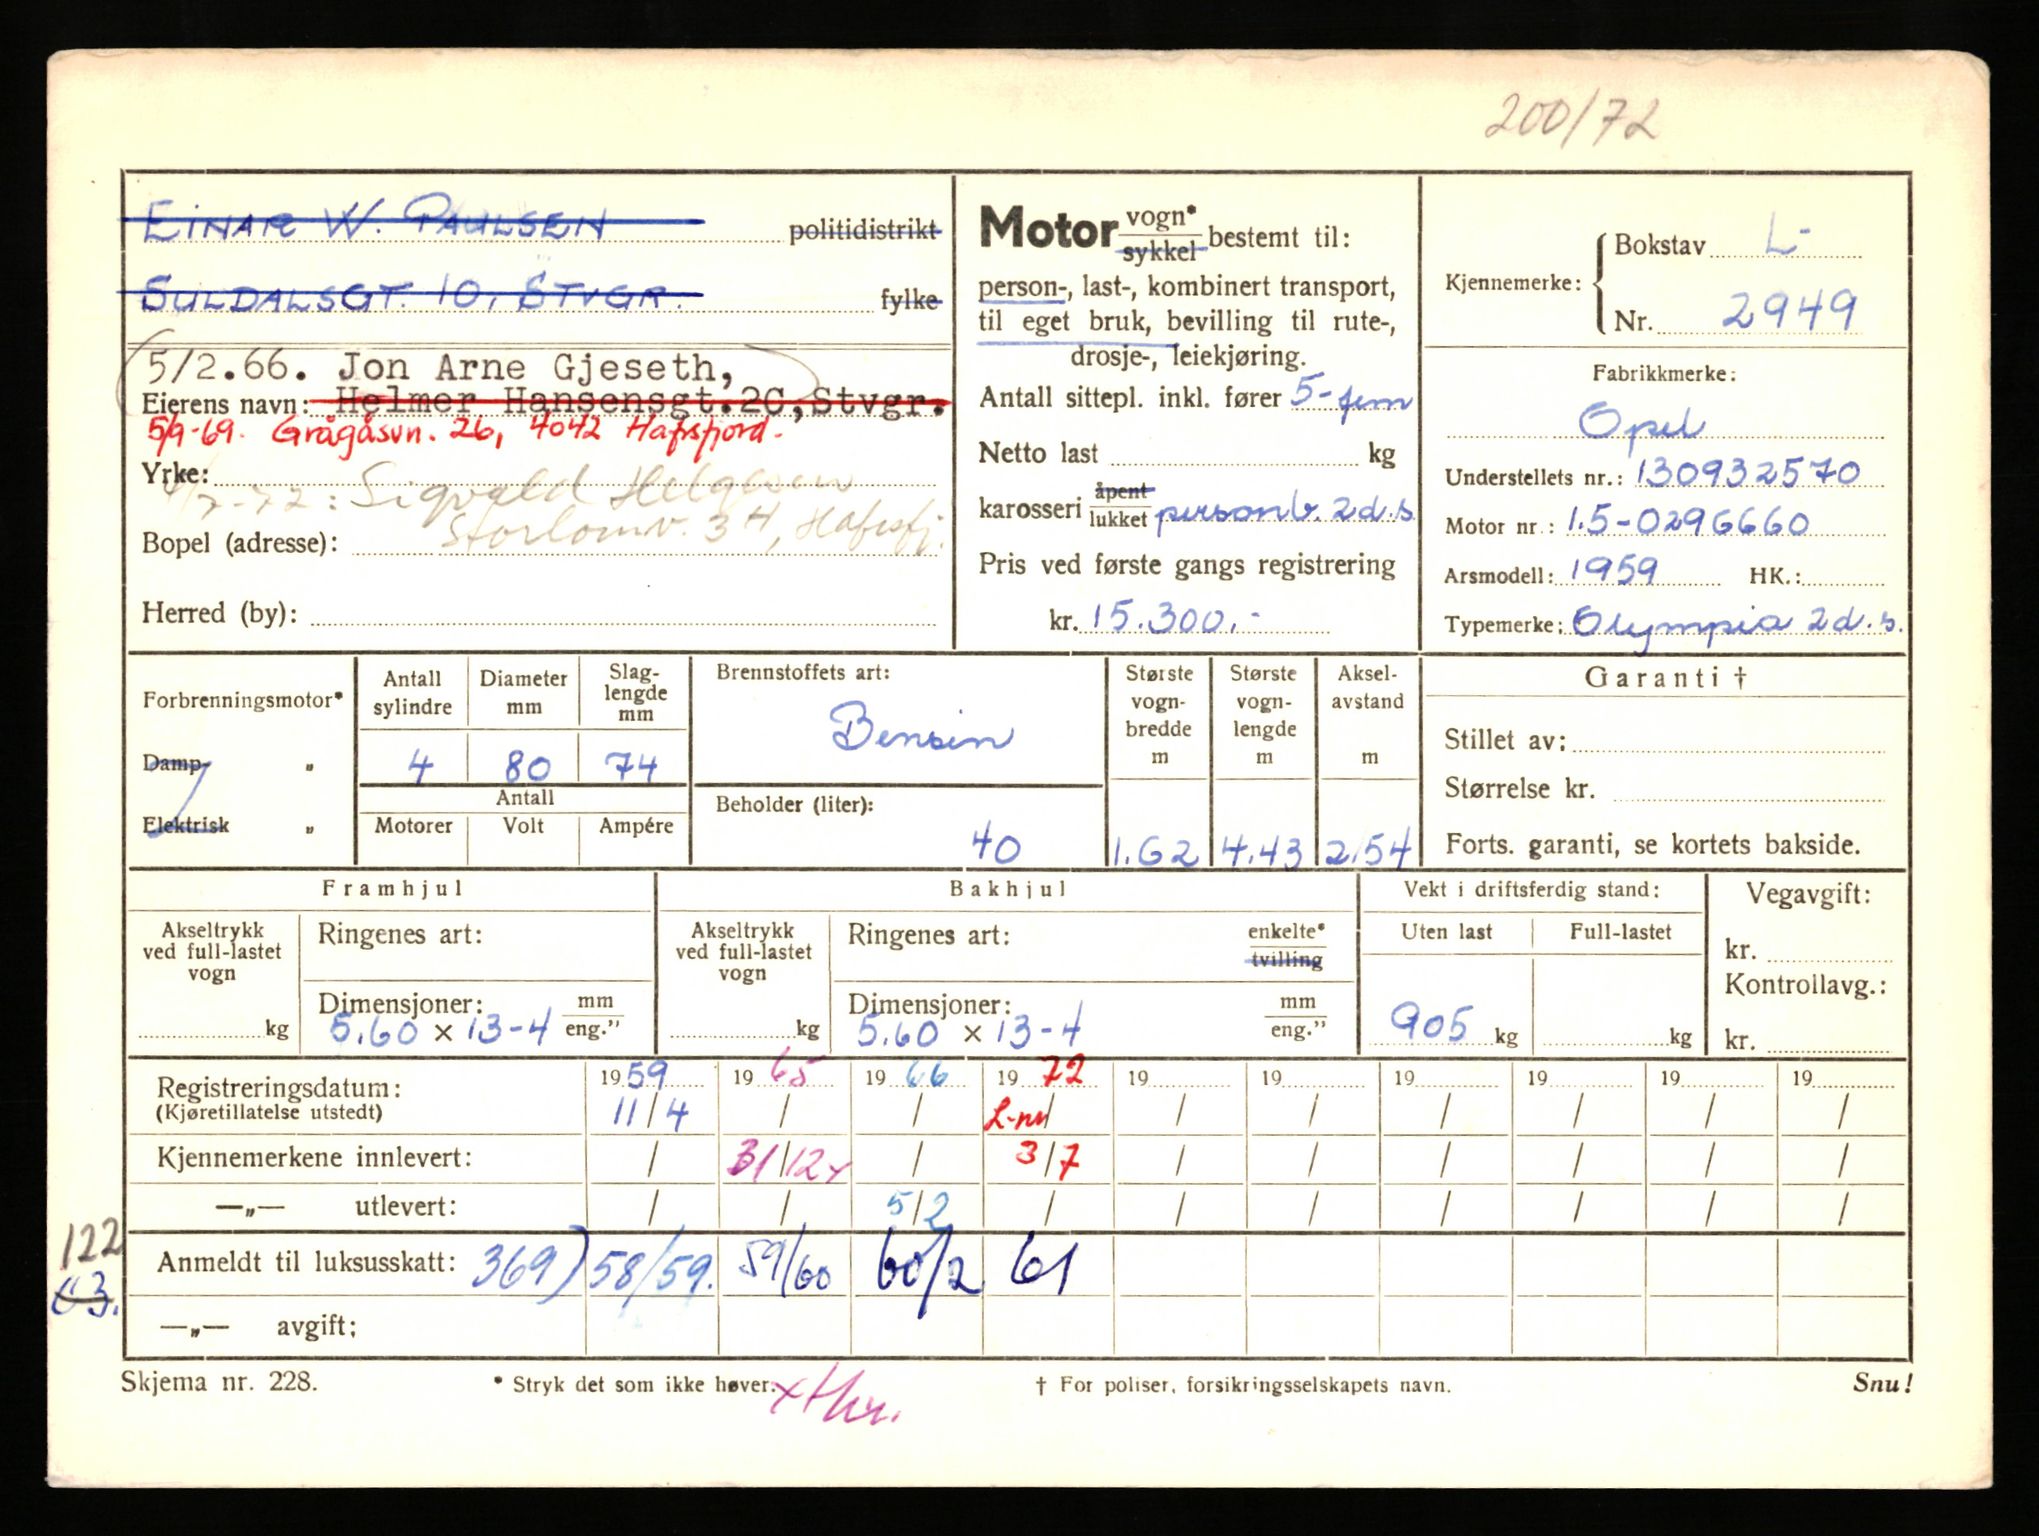 200/72
EINAR W. PAULSEN politidistrikt
SULDALSGT. 10, STVGR. fylke
5/2.66. Jon Arne Gjeseth,
Eierens navn: Helmer Hansensgt. 2C, Stvgr.
5/9-69. Grågåsvn. 26, 4042 Hafrsfjord.
Yrke:
/7-72: Sigvald Helgesen
Storlomv. 34, Hafrsfj.
Bopel (adresse):
Herred (by):
Motor vogn* sykkel bestemt til:
person-, last-, kombinert transport,
til eget bruk, bevilling til rute-,
drosje-, leiekjøring.
Antall sittepl. inkl. fører 5-fem
Netto last kg
karosseri åpent lukket personb. 2d.s
Pris ved første gangs registrering
kr. 15.300,-
Kjennemerke: Bokstav L-
Nr. 2949
Fabrikkmerke:
Opel
Understellets nr.: 130932570
Motor nr.: 1.5-0296660
Arsmodell: 1959 HK.:
Typemerke: Olympia 2d.s.
Forbrenningsmotor*
Damp- "
Elektrisk "
Antall sylindre Diameter mm Slag-lengde mm
4 80 74
Antall
Motorer Volt Ampére
Brennstoffets art:
Bensin
Beholder (liter):
40
Største vogn-bredde m
1.62
Største vogn-lengde m
4.43
Aksel-avstand m
2.54
Garanti †
Stillet av:
Størrelse kr.
Forts. garanti, se kortets bakside.
Framhjul
Akseltrykk ved full-lastet vogn
kg
Ringenes art:
Dimensjoner: mm
5.60 × 13-4 eng."
Bakhjul
Akseltrykk ved full-lastet vogn
kg
Ringenes art: enkelte* tvilling
Dimensjoner: mm
5.60 × 13-4 eng."
Vekt i driftsferdig stand:
Uten last Full-lastet
905 kg kg
Vegavgift:
kr.
Kontrollavg.:
kr.
Registreringsdatum: 1959 1965 1966 1972 19 19 19 19 19 19
(Kjøretillatelse utstedt) 11/4 / / L-nr/ / / / / / /
Kjennemerkene innlevert: / 31/12x / 3/7 / / / / / /
—„— utlevert: / / 5/2 / / / / / / /
122
63.
Anmeldt til luksusskatt: 369) 58/59. 59/60 60/2 61
—„— avgift:
Skjema nr. 228. * Stryk det som ikke høver. † For poliser, forsikringsselskapets navn. Snu!